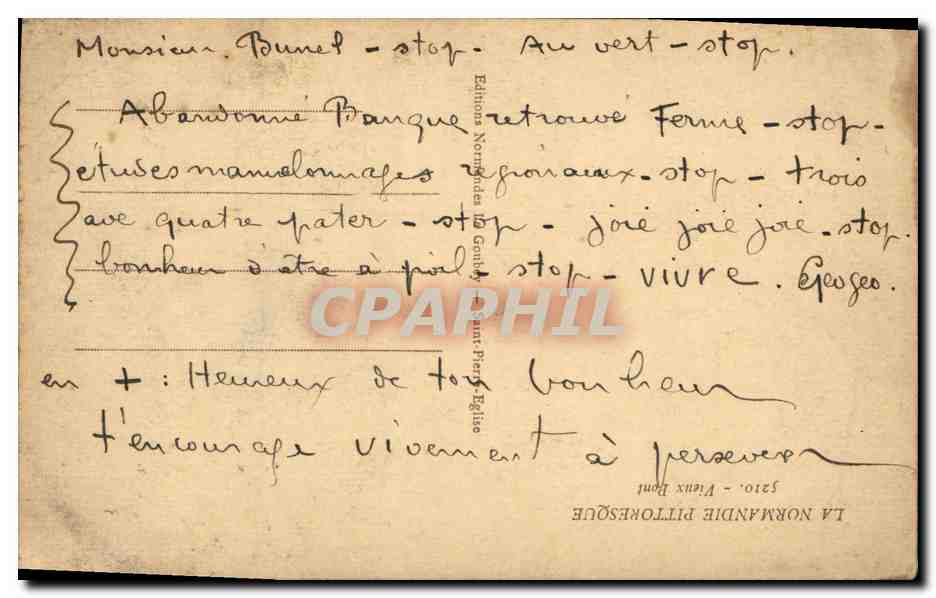 Monsieur Bunel - stop - Au vert - stop.
Abandonné Banque retrouvé Ferme - stop -
études mamelonnages régionaux - stop - trois
ave quatre pater - stop - joie joie joie - stop.
bonheur d'être à poil - stop - vivre. Geogeo.
en + : Heureux de ton bonheur
t'encourage vivement à persévérer
Editions Normandes Le Goubey - Saint-Pierre-Eglise
CPAPHIL
5210. - Vieux Pont
LA NORMANDIE PITTORESQUE